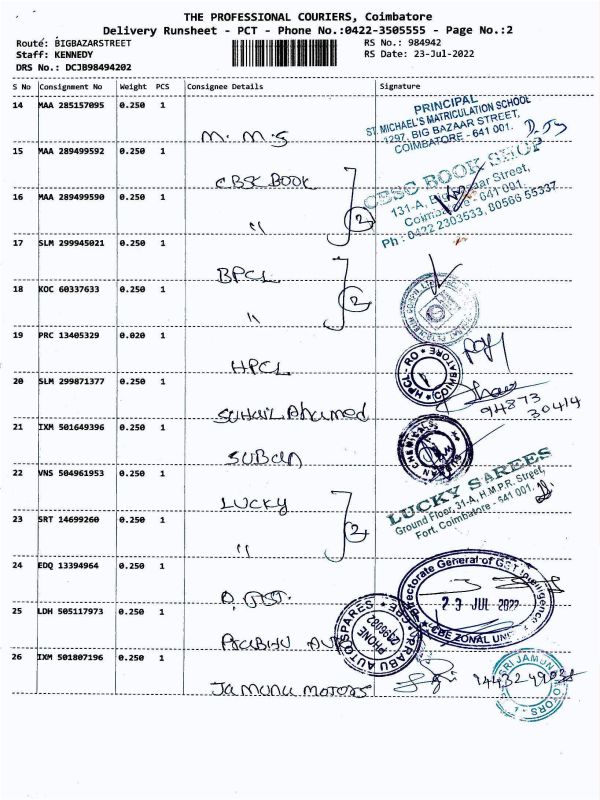 THE PROFESSIONAL COURIERS, Coimbatore
Delivery Runsheet - PCT - Phone No.:0422-3505555 - Page No.:2
Route: BIGBAZARSTREET RS No.: 984942
Staff: KENNEDY RS Date: 23-Jul-2022
DRS No.: DCJB98494202
S No Consignment No Weight PCS Consignee Details Signature
14 MAA 285157095 0.250 1 M.M.S
PRINCIPAL
ST. MICHAEL'S MATRICULATION SCHOOL
1297, BIG BAZAAR STREET,
COIMBATORE - 641 001.
15 MAA 289499592 0.250 1 CBSC BOOK
16 MAA 289499590 0.250 1 " 2
CBSC BOOK SHOP
131-A, Big Bazaar Street,
Coimbatore - 641 001.
Ph : 0422 2303533, 80566 55337
17 SLM 299945021 0.250 1 BPCL
18 KOC 60337633 0.250 1 " 2
19 PRC 13405329 0.020 1 HPCL
HPCL-RO * COIMBATORE *
20 SLM 299871377 0.250 1 SUHail Ahamed
94873
30414
21 IXM 501649396 0.250 1 SUBAN
CHEMICALS
22 VNS 504961953 0.250 1 LUCKY
23 SRT 14699260 0.250 1 " 2
LUCKY SAREES
Ground Floor, 31-A, H.M.P.R. Street,
Fort, Coimbatore - 641 001.
24 EDQ 13394964 0.250 1
Directorate General of GST Intelligence
23 JUL 2022
CBE ZONAL UNIT
25 LDH 505117973 0.250 1 PRABHU AUTO
PRABU AUTO SPARES * CBE *
PHONE
26 IXM 501807196 0.250 1 Jamuna Motors
SRI JAMUNA MOTORS